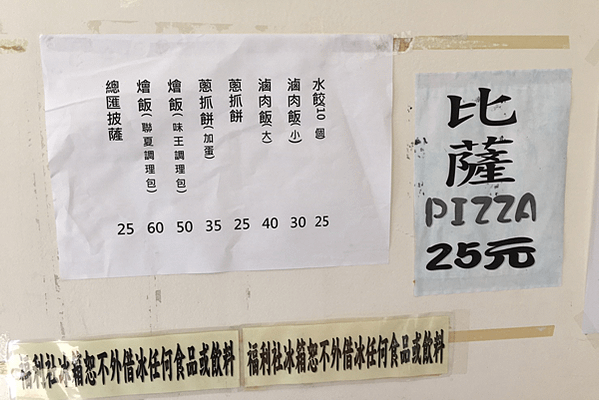 水餃10個 25
滷肉飯(小) 30
滷肉飯(大) 40
蔥抓餅 25
蔥抓餅(加蛋) 35
燴飯(味王調理包) 50
燴飯(聯夏調理包) 60
總匯披薩 25
比薩
PIZZA
25元
福利社冰箱恕不外借冰任何食品或飲料
福利社冰箱恕不外借冰任何食品或飲料